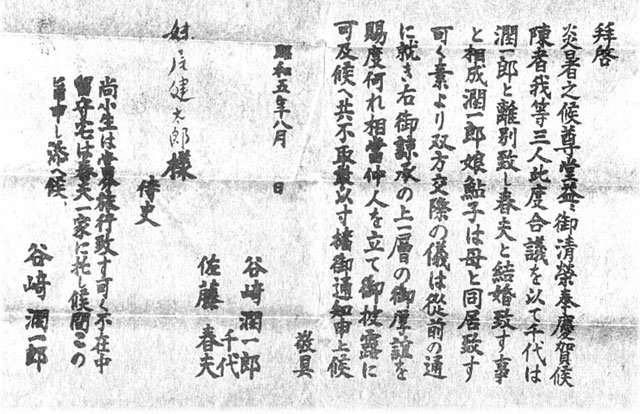 拝啓
炎暑之候尊堂益々御清榮奉慶賀候
陳者我等三人此度合議を以て千代は
潤一郎と離別致し春夫と結婚致す事
と相成潤一郎娘鮎子は母と同居致す
可く素より双方交際の儀は従前の通
に就き右御諒承の上一層の御厚誼を
賜度何れ相當仲人を立て御披露に
可及候へ共不取敢以寸楮御通知申上候
敬具
谷崎潤一郎
千代
佐藤春夫
昭和五年八月 日
健太郎様
侍史
尚小生は當分旅行致す可く不在中
留守宅は春夫一家に托し候間この
旨申し添へ候
谷崎潤一郎